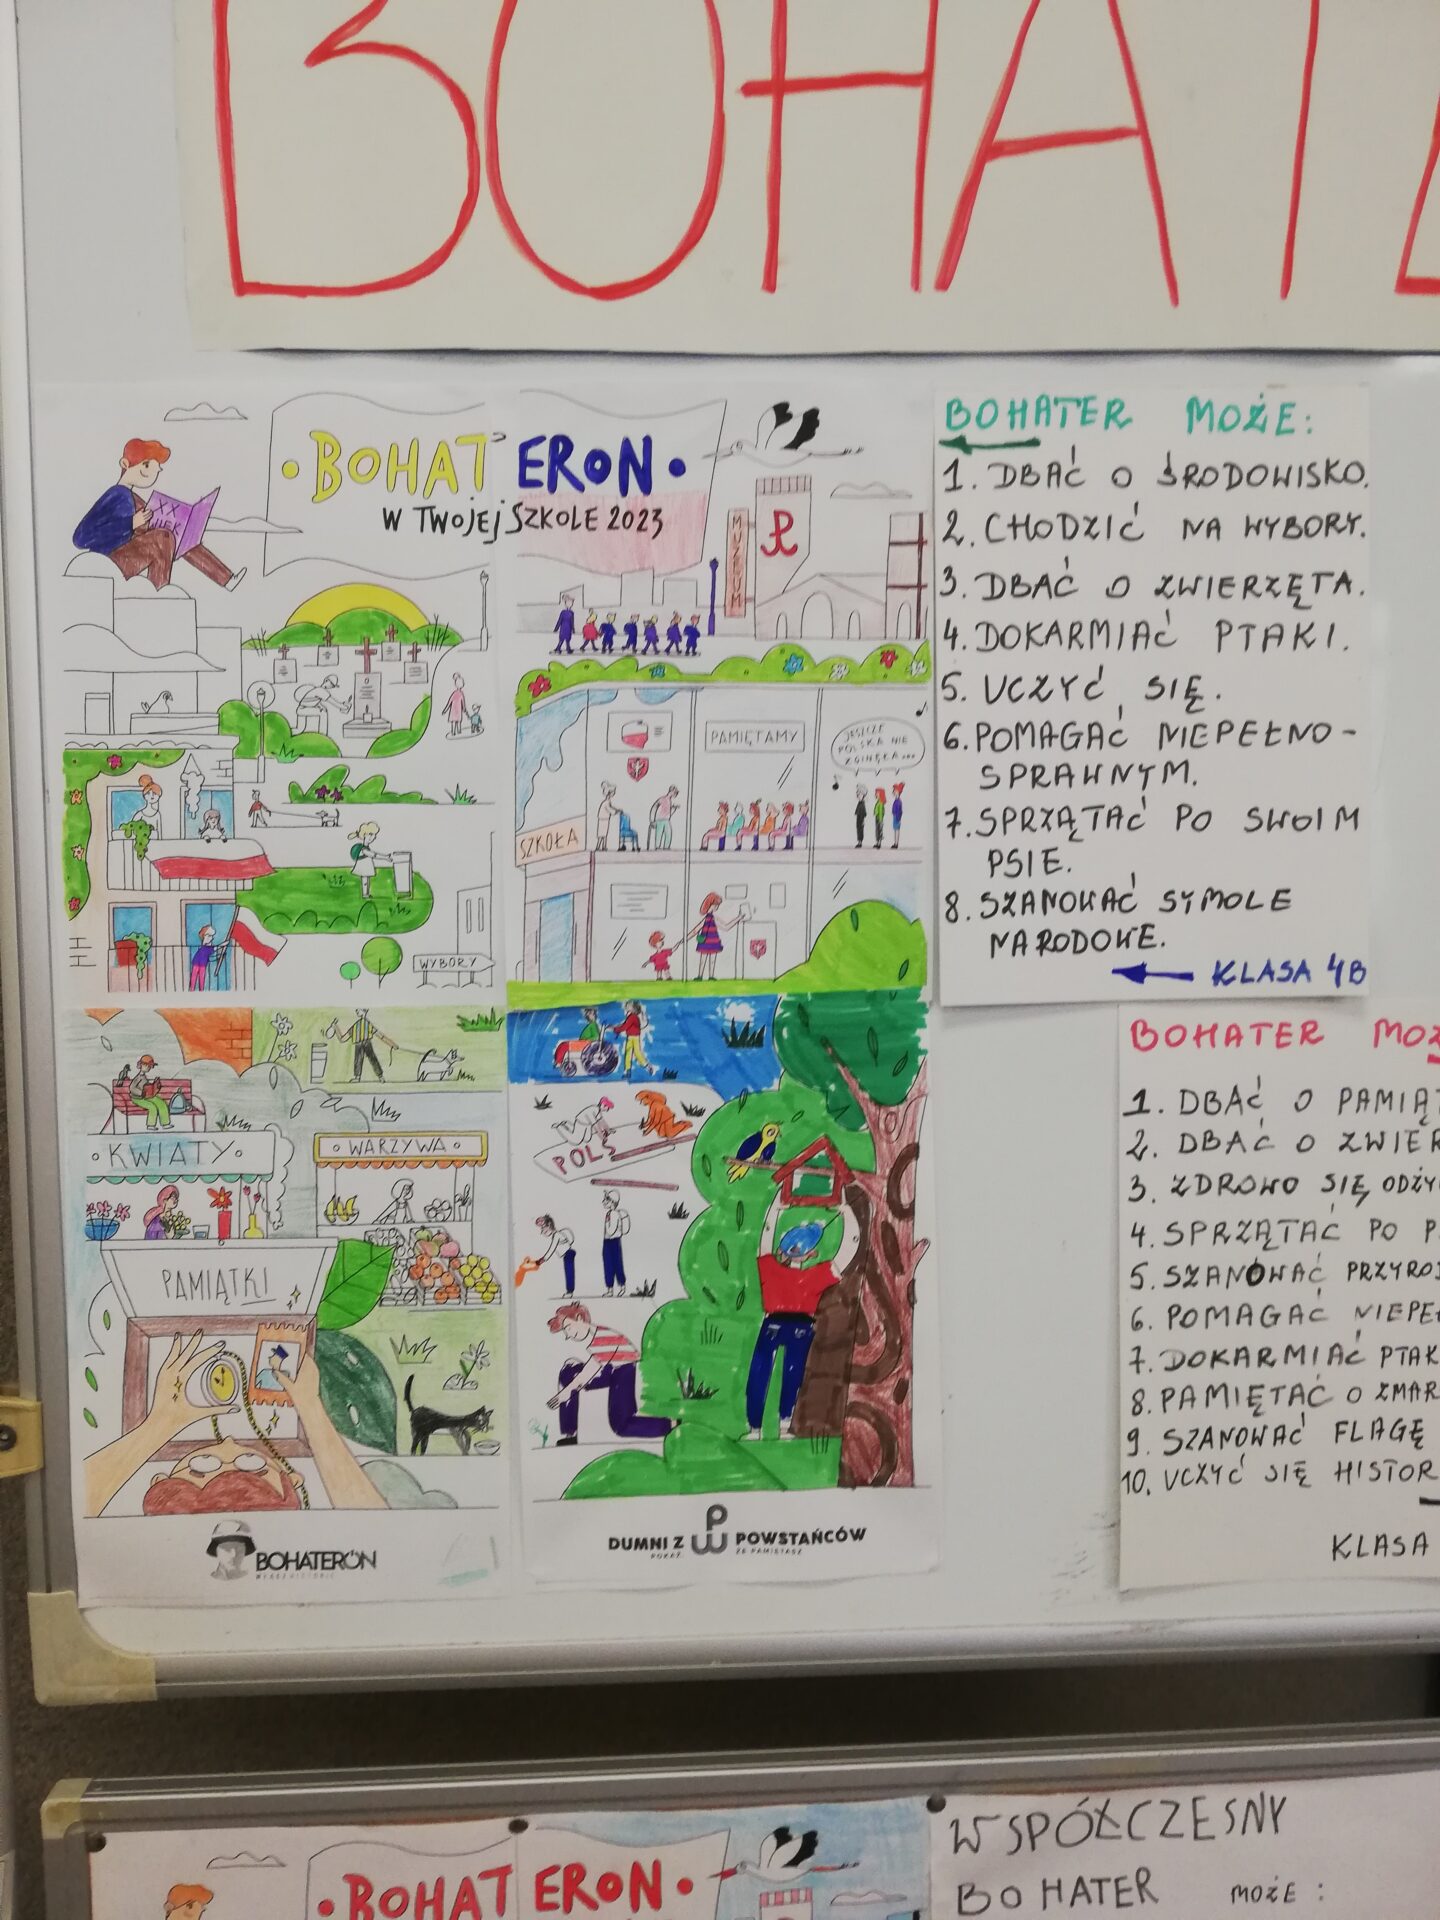 BOHATE
BOHATERON
W TWOJEJ SZKOLE 2023
XX
WIEK
MUZEUM
PAMIĘTAMY
JESZCZE
POLSKA NIE
ZGINĘŁA...
SZKOŁA
WYBORY
KWIATY
WARZYWA
PAMIĄTKI
POLS
BOHATERÓN
DUMNI Z POWSTAŃCÓW
BOHATER MOŻE:
1. DBAĆ O ŚRODOWISKO.
2. CHODZIĆ NA WYBORY.
3. DBAĆ O ZWIERZĘTA.
4. DOKARMIAĆ PTAKI.
5. UCZYĆ SIĘ.
6. POMAGAĆ NIEPEŁNO-
SPRAWNYM.
7. SPRZĄTAĆ PO SWOIM
PSIE.
8. SZANOWAĆ SYMOLE
NARODOWE.
KLASA 4B
BOHATER MOŻ
1. DBAĆ O PAMIĄT
2. DBAĆ O ZWIER
3. ZDROWO SIĘ ODŻY
4. SPRZĄTAĆ PO P
5. SZANOWAĆ PRZYROD
6. POMAGAĆ NIEPEŁ
7. DOKARMIAĆ PTAK
8. PAMIĘTAĆ O ZMAR
9. SZANOWAĆ FLAGĘ
10. UCZYĆ SIĘ HISTOR
KLASA
BOHATERON
WSPÓŁCZESNY
BOHATER MOŻE: